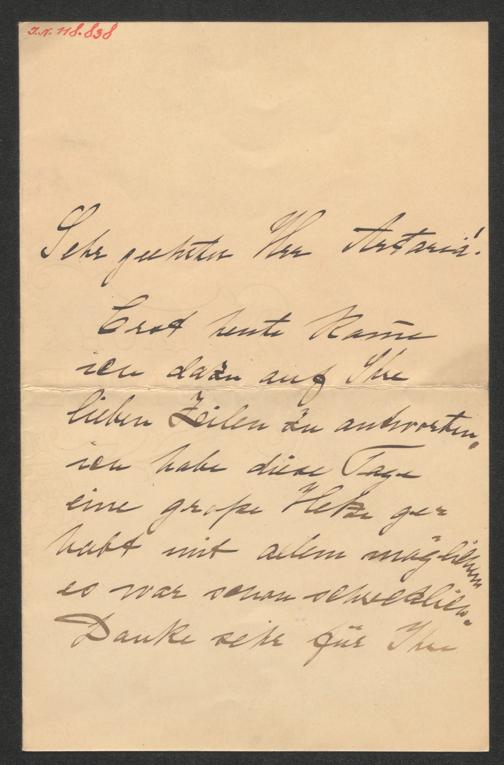 I.N. 118.838
Sehr geehrter Herr Artaria!
Erst heute kome
ich dazu auf Ihre
lieben Zeilen zu antworten,
ich habe diese Tage
eine große Hetze ge
habt mit allem möglichem
es war schon schrecklich.
Danke sehr für Ihre